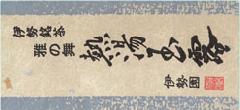 伊勢銘茶
雅の舞
熱湯玉露
伊勢園